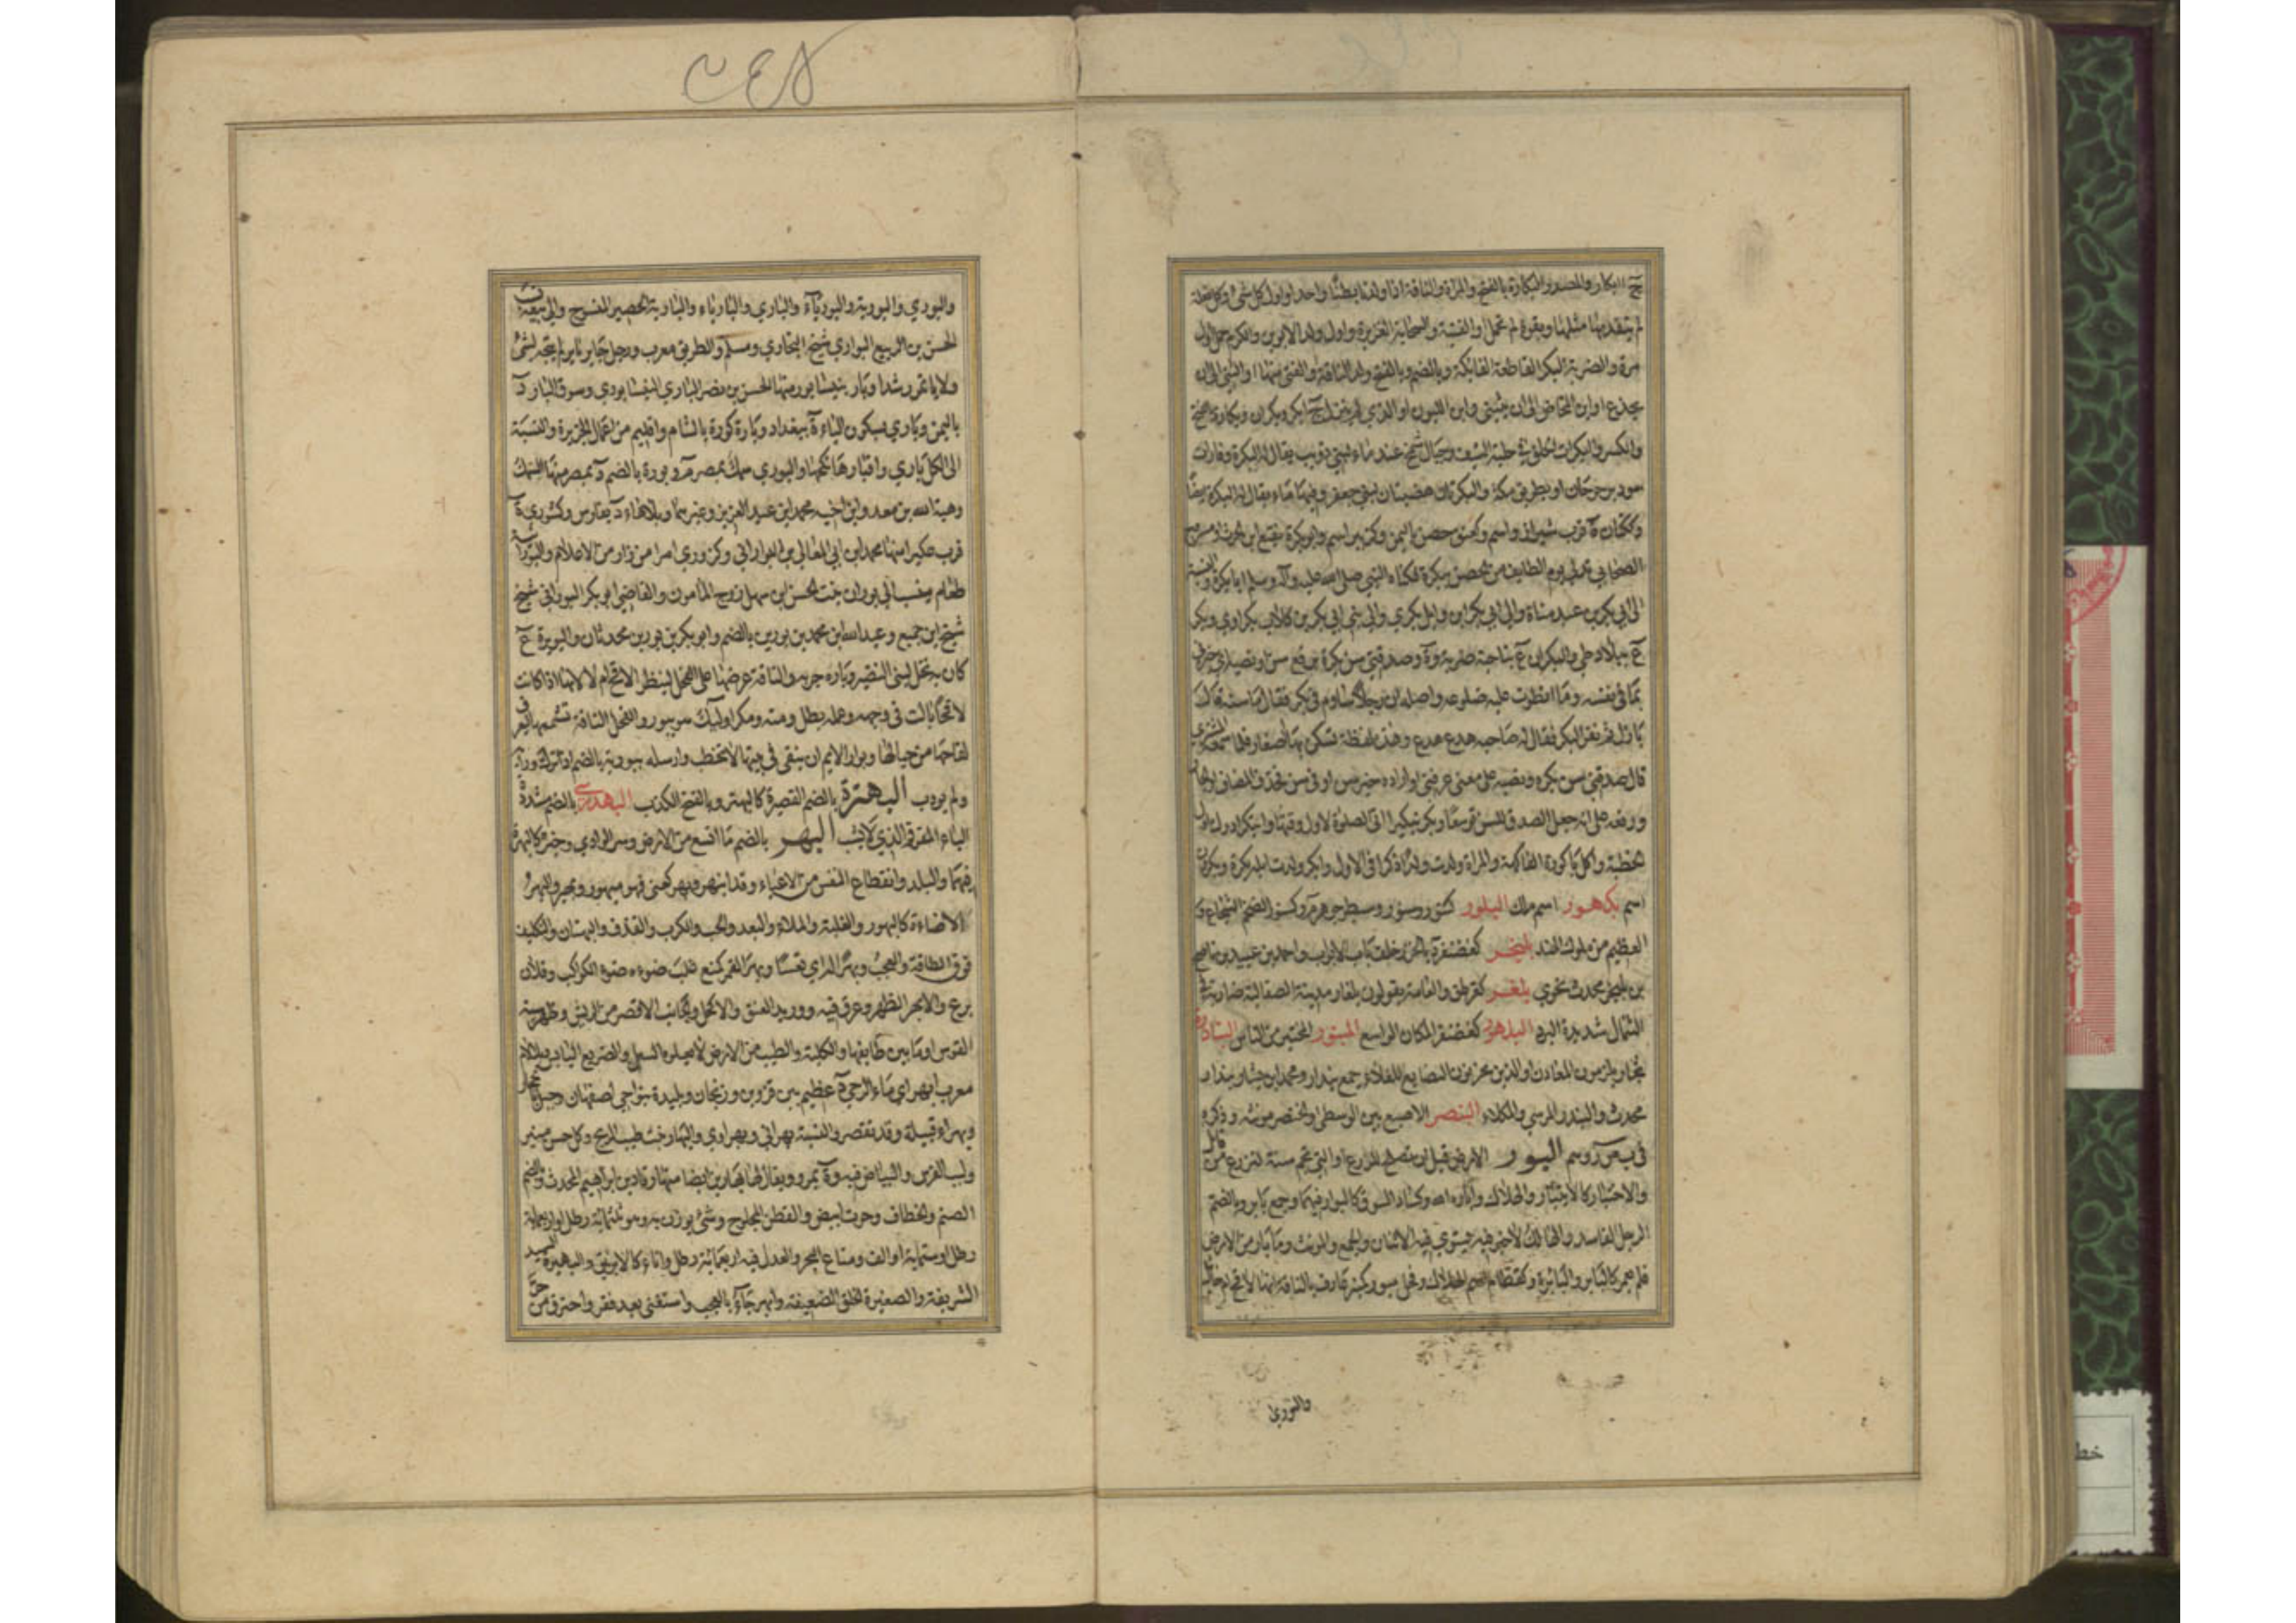 ج ابكار والمصدر البكارة بالفتح والمراة والناقة اذا ولدتا بطنا واحدا واول كل شئ وكل فعلة
لم يتقدمها مثلها وبقرة لم تحمل او الفتية والسحابة الغزيرة واول ولد الابوين والكرم حمل اول
مرة والضربة البكر القاطعة القاتلة وبالضم وبالفتح ولد الناقة او الفتى منها او الثنى الى ان
يجذع او ابن المخاض الى ان يثنى او ابن اللبون او الذي لم يبزل ج ابكر وبكران وبكارة بالفتح
والكسر والبكرات الحلق في حلية السيف وجبال شمخ عند ماء لبني ذويب يقال له البكرة وقارات
سود برحرحان او بطريق مكة والبكرتان هضبتان لبني جعفر وفيهما ماء يقال له البكرة ايضا
وككتان ة قرب شيراز واسم وكعنق حصن باليمن وكزبير اسم وابو بكرة نفيع ابن الحرث او مسروح
الصحابي تدلى يوم الطايف من الحصن ببكرة فكناه النبي صلى الله عليه وآله وسلم ابا بكرة والنسبة
الى ابي بكر بن عبد مناة والى ابي بكر ابن وايل بكري والى بني ابي بكر بن كلاب بكراوي وبكر
ع ببلاد طي والبكران ع بناحية ضرية وة وصدقني سن بكره برفع سن ونصبه اي خبرني
بما في نفسه وما انطوت عليه ضلوعه واصله ان رجلا ساوم في بكر فقال ما سنه فقال
بازل ثم نفر البكر فقال له صاحبه هدع هدع وهذه لفظة تسكن بها الصغار فلما سمعه المشتري
قال صدقني سن بكره ونصبه على معنى عرفني او ارادة خبر سن او في سن فحذف المضاف او الجار
ورفعه على انه جعل الصدق للسن توسعا وبكر تبكيرا اتى الصلوة لاول وقتها وابتكر ادرك اول
الخطبة واكل باكورة الفاكهة والمراة ولدت ولدا ذكرا في الاول وابكر وردت ابله بكرة وبكرون
اسم بكهور اسم ملك البلور كتنور وسنور وسبطر جوهر م وكسنور الضخم الشجاع و
العظيم من ملوك الهند بلنجر كغضنفر ة بالخزر خلف باب الابواب واحمد بن عبيد بن ناصح
بن بلنجر محدث نحوي بلغر كقرطق والعامة يقولون بلغار مدينة الصقالبة ضاربة في
الشمال شديدة البرد البلهور كغضنفر المكان الواسع المبنور المختبر من الناس البنادرة
تجار يلزمون المعادن او الذين يخزنون البضايع للغلاء جمع بندار ومحمد ابن بشار بندار
محدث والبندر المرسى والمكلاء البنصر الاصبع بين الوسطى والخنصر مونثة وذكره
في ب ص ر وهم البور الارض قبل ان تصلح للزرع او التي تجم سنة لتزرع من قابل
والاختبار كالابتيار والهلاك واباره الله وكساد السوق كالبوار فيهما وجمع باير وبالضم
الرجل الفاسد والهالك لا خير فيه يستوي فيه الاثنان والجمع والمونث وما بار من الارض
فلم يعمر كالباير والبايرة وكقطام اسم الهلاك وفحل مبور كمنبر عارف بالناقة انها لاقح او حايل
والبوري
والبوري والبورية والبورياء والباري والبارياء والبارية الحصير المنسوج والى بيعه نسب
الحسن بن الربيع البواري شيخ البخاري ومسلم والطريق معرب ورجل حاير باير لم يتجه لشئ
ولا ياتمر رشدا وبار بنيسابور منها الحسن بن نصر الباري النيسابوري وسوق البار د
باليمن وباري بسكون الياء ة ببغداد وبارة كورة بالشام واقليم من اعمال الجزيرة والنسبة
الى الكل باري وابتارها نكحها والبوري سمك بمصر م وبورة بالضم د بمصر منها السمك
وهبة الله بن معد وابن اخيه محمد ابن عبد العزيز وغيرهما وبلا هاء د بفارس وكشورى ة
قرب عكبرا منها محمد ابن ابي المعالي بن البوراني وكزوري امرا من زار من الاعلام والبورانية
طعام ينسب الى بوران بنت الحسن بن سهل زوج المامون والقاضي ابو بكر البوراني شيخ
شيخ ابن جميع وعبد الله ابن محمد بن بورين بالضم وابو بكر بن بورين محدثان والبويرة ع
كان به نخل لبني النضير وباره جربه والناقة عرضها على الفحل لينظر الاقح ام لا لانها اذا كانت
لاقحا بالت في وجهه وعمله بطل ومنه ومكر اوليك هو يبور والفحل الناقة تشممها ليعرف
لقاحها من حيالها وبوار الايم ان تبقى في بيتها لا تخطب وارسله ببوريته بالضم اذا ترك ورايه
ولم يودب البهترة بالضم القصيرة كالبهتر وبالفتح الكذب البهدري بالضم مشددة
الياء المقرقم الذي لا يشب البهر بالضم ما اتسع من الارض وسر الوادي وخيره كالبهرة
فيهما والبلد وانقطاع النفس من الاعياء وقد انبهر وبهر كعنى فهو مبهور وبهير والبهر
الاضاءة كالبهور والغلبة والملاء والبعد والحب والكرب والقذف والبهتان والتكليف
فوق الطاقة والعجب وبهرا له اي تعسا وبهر القمر كمنع غلب ضوءه ضوء الكواكب وفلان
برع والابهر الظهر وعرق فيه ووريد العنق والاكحل والجانب الاقصر من الريش وظهر سية
القوس او ما بين طايفها والكلية والطيب من الارض لا يعلوه السيل والضريع اليابس وبلا لام
معرب ابهر اي ماء الرحى د عظيم بين قزوين وزنجان وبليدة بنواحي اصفهان وجبل بالحجاز
وبهراء قبيلة وقد تقصر والنسبة بهراني وبهراوي والبهار نبت طيب الريح وكل حسن منير
ولبب الفرس والبياض فيه وة بمرو ويقال لها بهارين ايضا منها رقاد بن ابراهيم المحدث وبالضم
الصنم والخطاف وحوت ابيض والقطن المحلوج وشئ يوزن به وهو ثلثمائة رطل او اربعماية
رطل او ستماية او الف ومتاع البحر والعدل فيه اربعمائة رطل واناء كالابريق والبهيرة السيدة
الشريفة والصغيرة الخلق الضعيفة وابهر جاء بالعجب واستغنى بعد فقر واحترق من حر